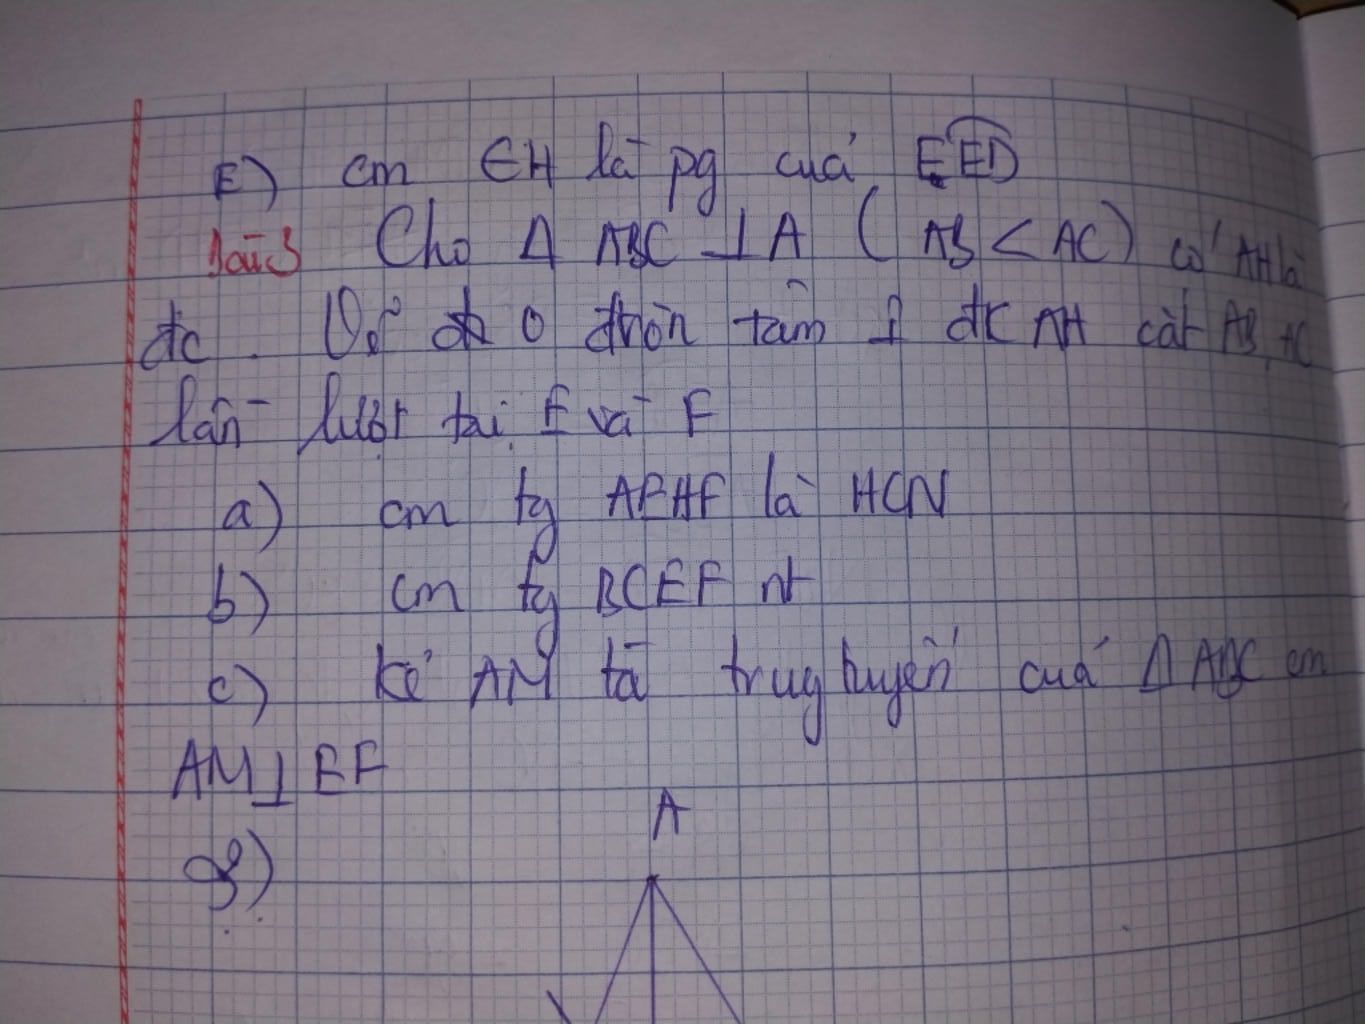 E) cm EH là pg của EED
Bài 3 Cho Δ ABC ⊥ A ( AB < AC) có AH là
đc. Vẽ O tròn tâm I đk AH cắt AB, AC
lần lượt tại E và F
a) cm tg AEHF là HCN
b) cm tg BCEF nt
c) kẻ AM là trug tuyến của Δ ABC cm
AM ⊥ EF
A